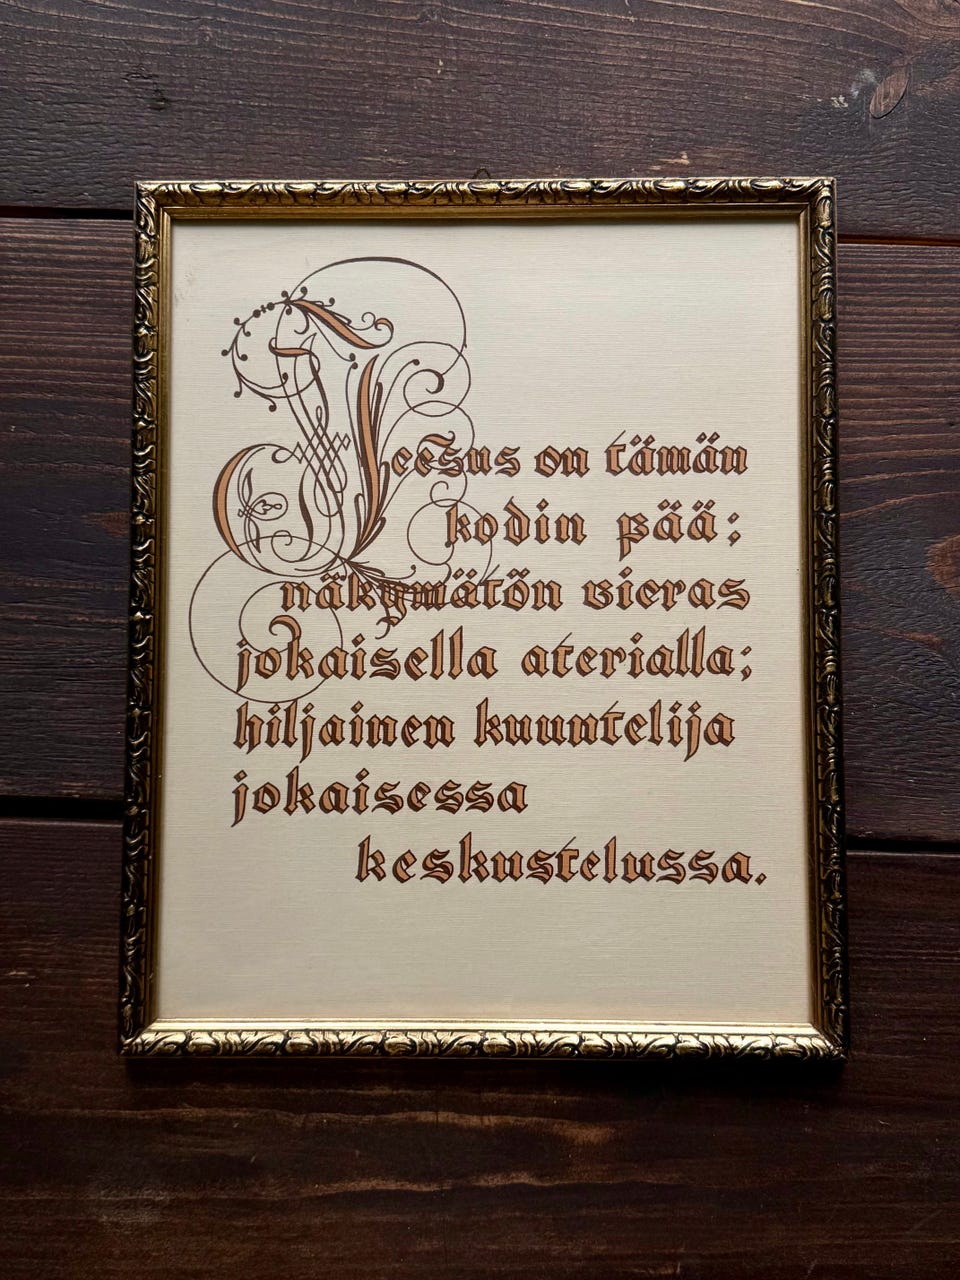 Jeesus on tämän
kodin pää;
näkymätön vieras
jokaisella aterialla;
hiljainen kuuntelija
jokaisessa
keskustelussa.